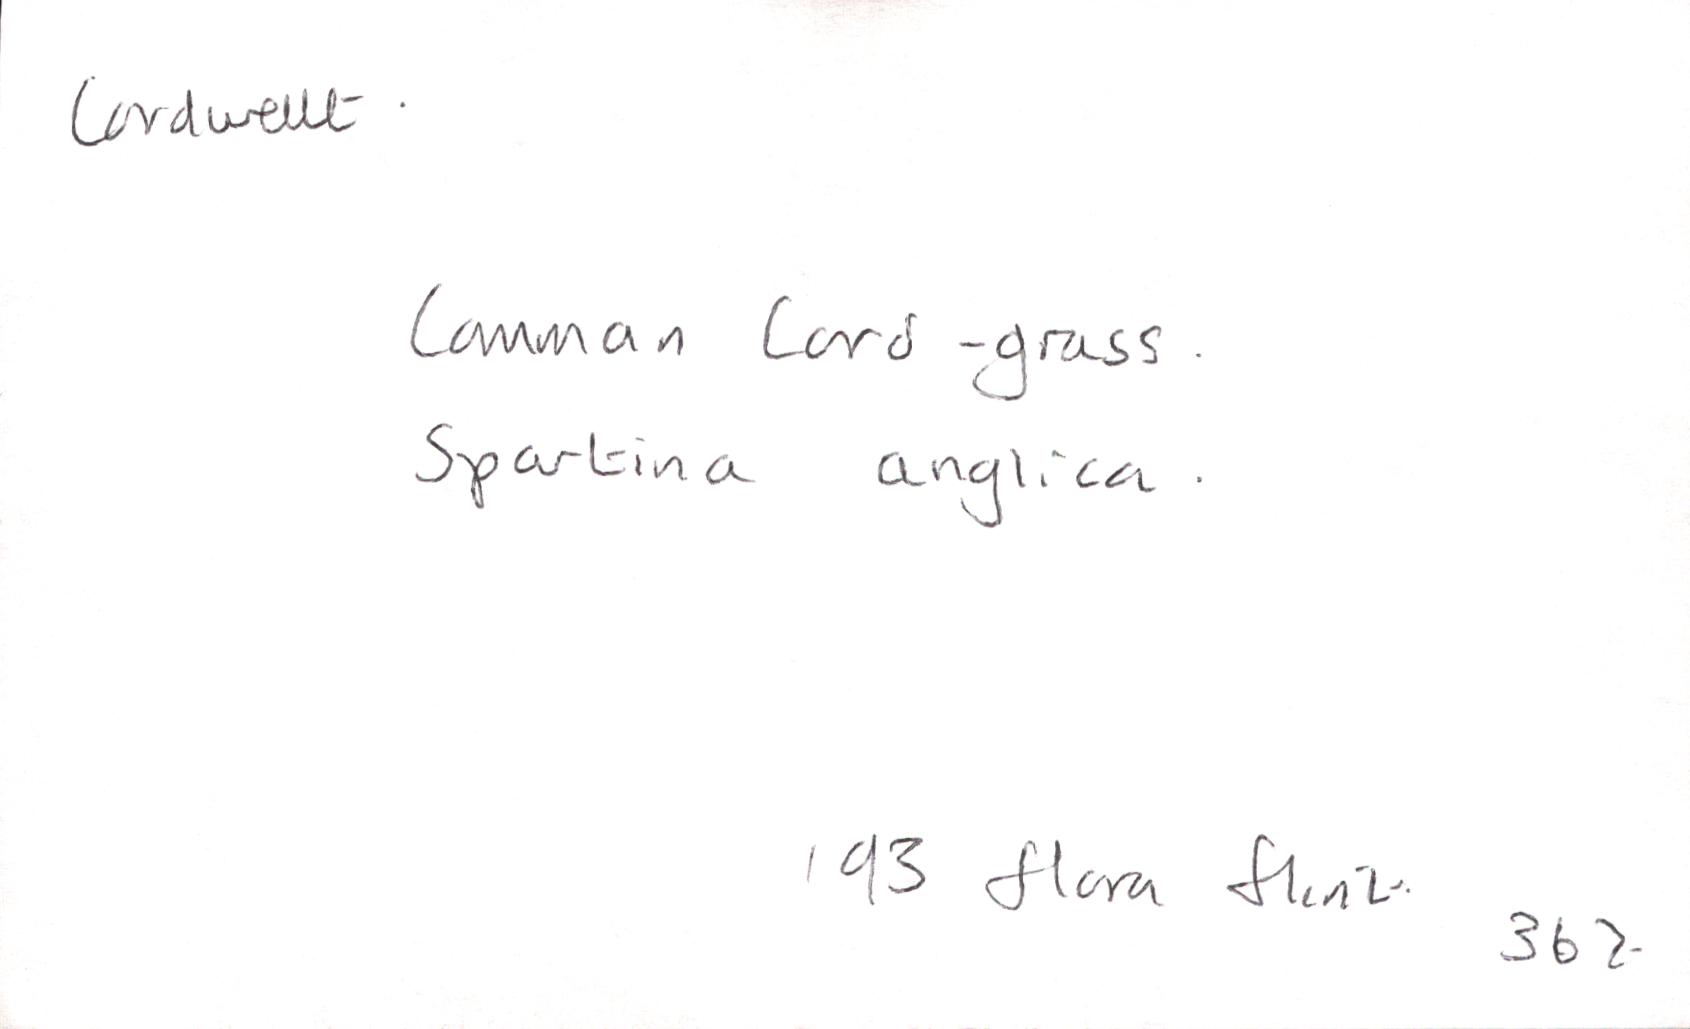 Cordwellt.
Common Cord-grass.
Spartina anglica.
193 flora flint.
362